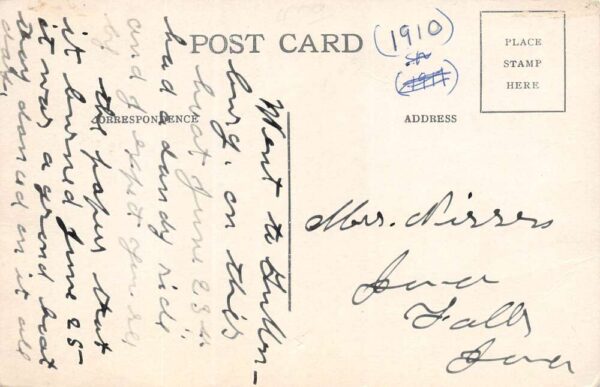 POST CARD
(1910)
PLACE
STAMP
HERE
CORRESPONDENCE
ADDRESS
Went to Gutten-
burg. on this
boat June 23
had a dandy ride
and I expect you see
by the paper that
it burned June 25-
it was a grand boat
they danced on it all
day.
Mrs. Nissen
Iowa
Falls
Iowa